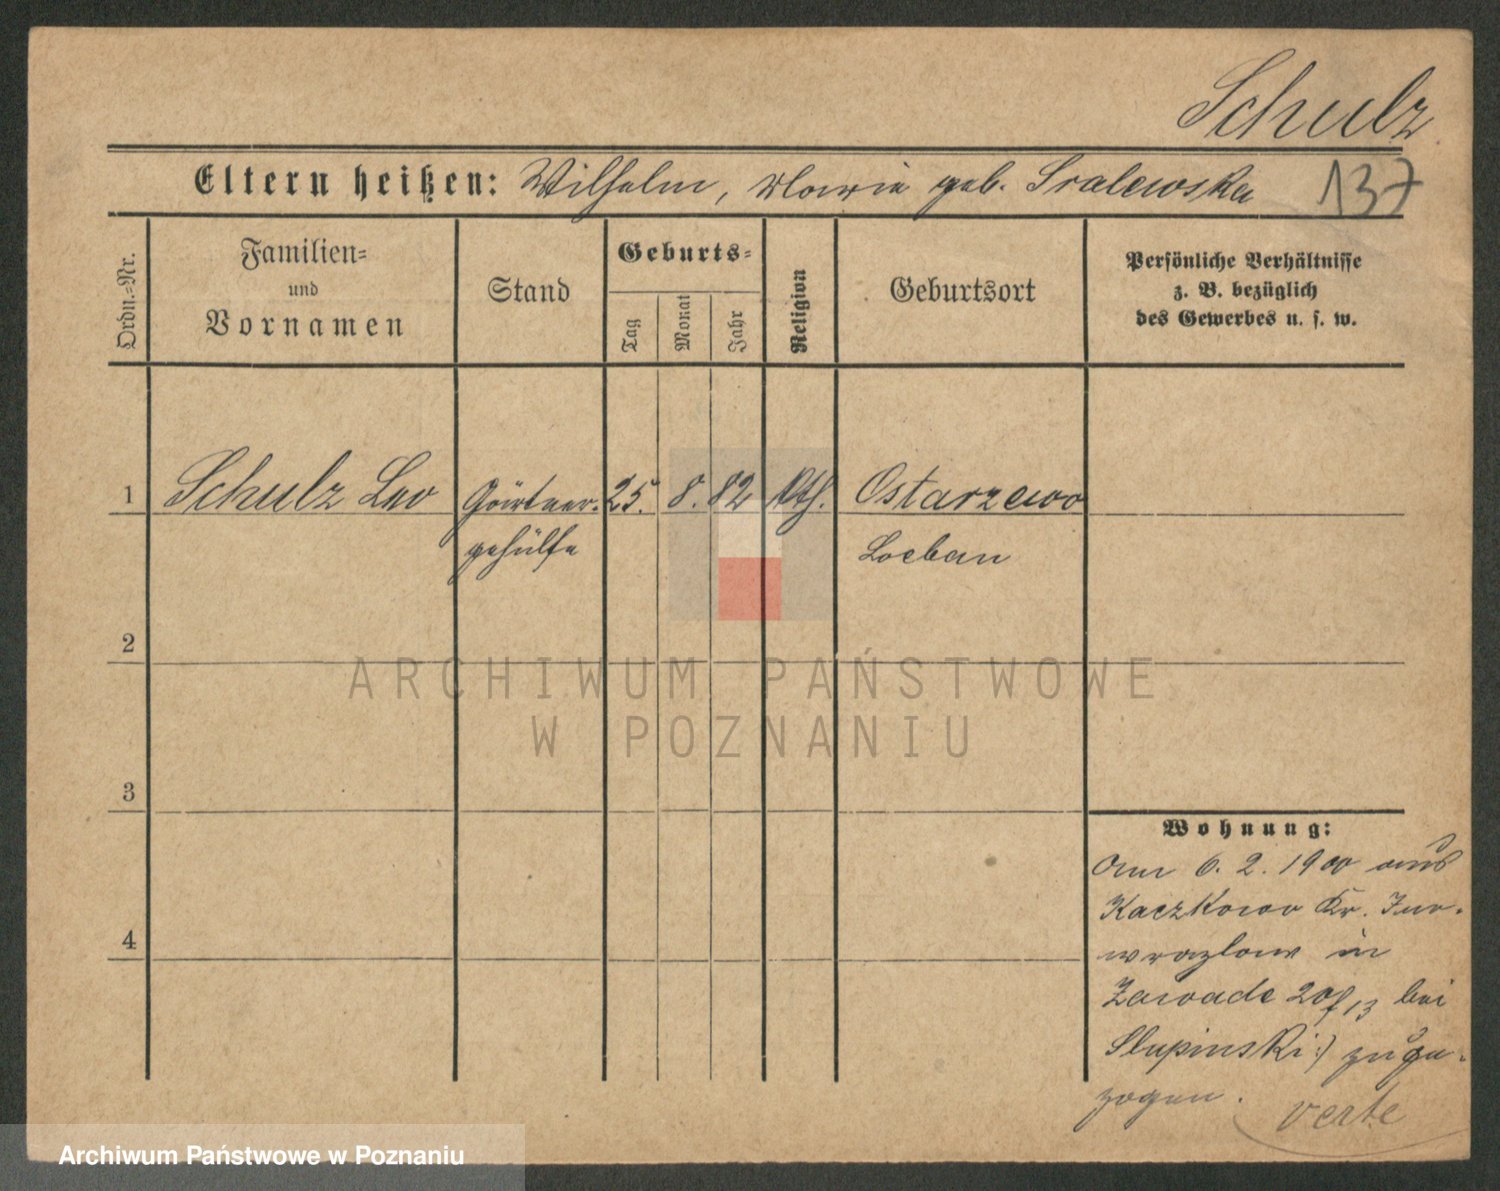 Schulz
Eltern heißen: Wilhelm, Marie geb. Sralewska 137
Ordn.=Nr.
Familien=
und
Vornamen
Stand
Geburts=
Tag
Monat
Jahr
Religion
Geburtsort
Persönliche Verhältnisse
z. B. bezüglich
des Gewerbes u. s. w.
1 Schulz Leo Gärtner- 25. 8. 82 Kth. Ostarzewo
gehülfe Loeban
2
3
4
Wohnung:
Am 6. 2. 1900 aus
Kaczkowo Kr. Ino-
wrazlaw in
Zawade 20/13 bei
Slupinski :) zuge-
zogen.
verte
ARCHIWUM PAŃSTWOWE
W POZNANIU
Archiwum Państwowe w Poznaniu